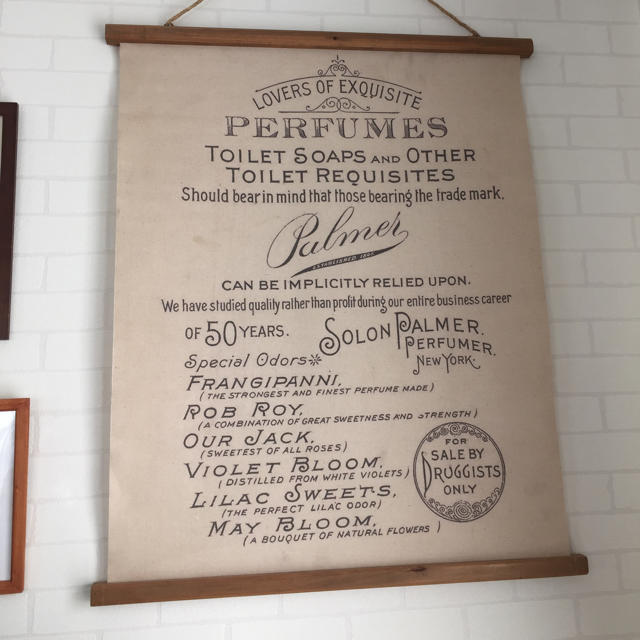 LOVERS OF EXQUISITE
PERFUMES
TOILET SOAPS AND OTHER
TOILET REQUISITES
Should bear in mind that those bearing the trade mark.
Palmer
ESTABLISHED
CAN BE IMPLICITLY RELIED UPON.
We have studied quality rather than profit during our entire business career
OF 50 YEARS.
SOLON PALMER.
PERFUMER.
NEW YORK.
Special Odors
FRANGIPANNI,
(THE STRONGEST AND FINEST PERFUME MADE)
ROB ROY,
(A COMBINATION OF GREAT SWEETNESS AND STRENGTH)
OUR JACK,
(SWEETEST OF ALL ROSES)
VIOLET BLOOM,
(DISTILLED FROM WHITE VIOLETS)
LILAC SWEETS,
(THE PERFECT LILAC ODOR)
MAY BLOOM,
(A BOUQUET OF NATURAL FLOWERS)
FOR
SALE BY
DRUGGISTS
ONLY